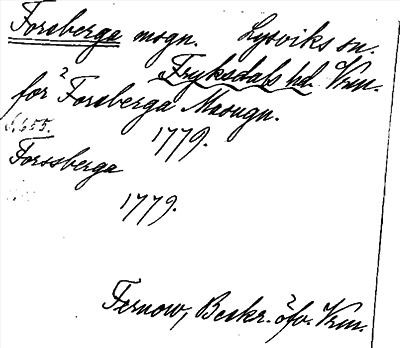 Forsberga msgn. Lysviks sn.
Fryksdals hd. Vrm.
for Forsberga Masugn.
s. 655. 1779.
Forssberga
1779.
Fernow, Beskr. öfv. Vrm.